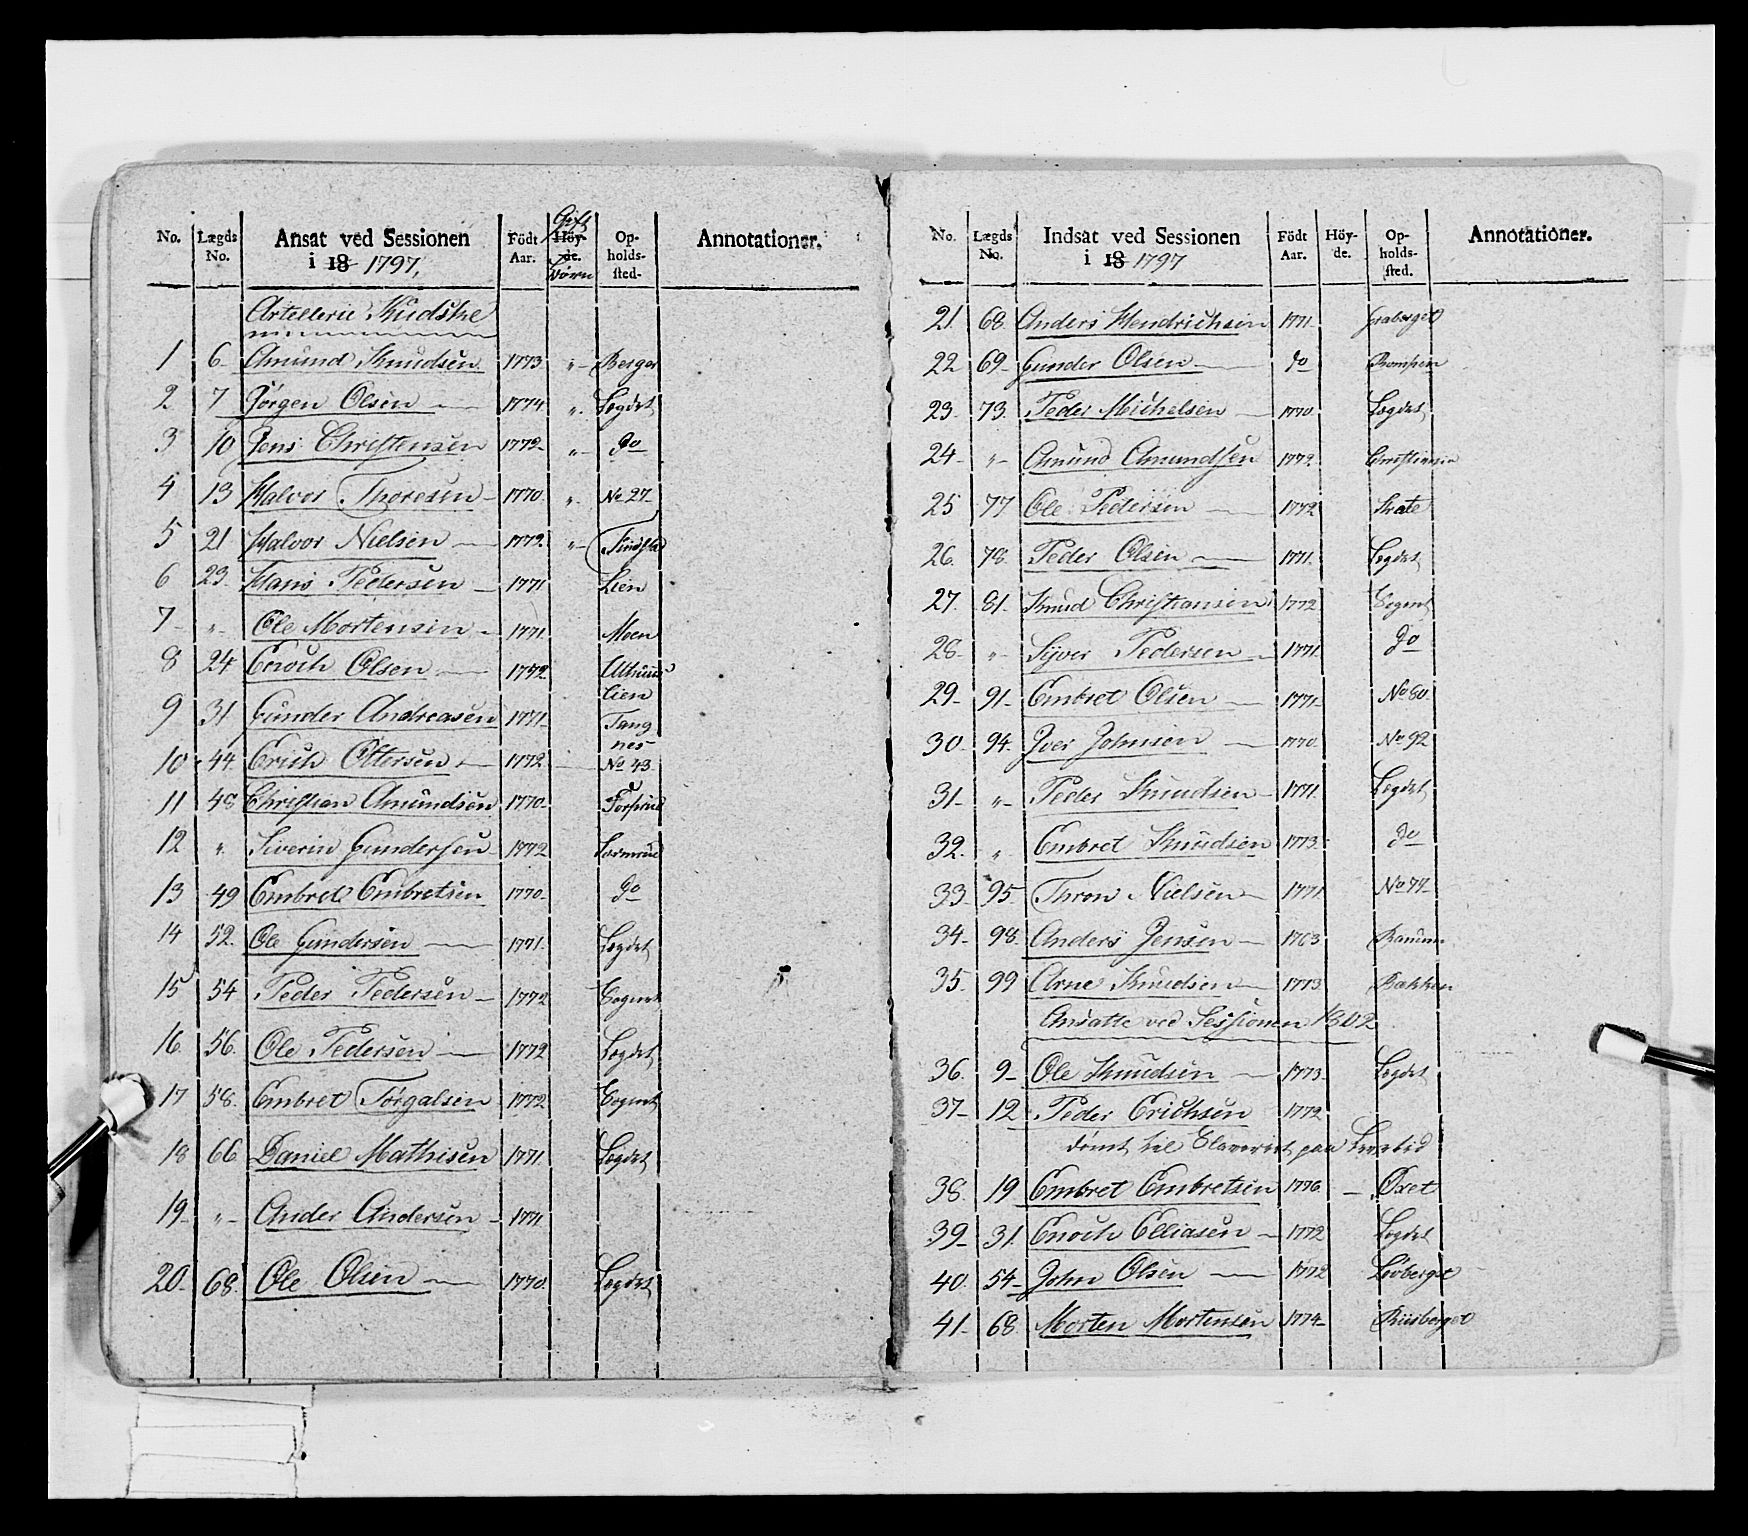 No. Lægds No. Ansat ved Sessionen i 18 1797. Födt Aar. Gift Höyde. Börn Opholdssted. Annotationer.
Artellerie Kudske
1 6 Amund Knudsen 1773 „ Berger
2 7 Jörgen Olsen 1774 „ Legdet
3 10 Jens Christensen 1772 „ do
4 13 Halvor Thoresen 1770 „ No 27
5 21 Halvor Nielsen 1772 „
6 23 Hans Pedersen 1771 Lien
7 „ Ole Mortensen 1771 Moen
8 24 Enoch Olsen 1772
lien
9 31 Gunder Andreasen 1771 Tang
nes
10 44 Erich Ottersen 1772 No 43
11 48 Christian Amundsen 1770
12 „ Siverin Gundersen 1772
13 49 Embret Embretsen 1770 do
14 52 Ole Gundersen 1771 Legdet
15 54 Peder Pedersen 1772
16 56 Ole Pedersen 1772 Legdet
17 58 Embret Törgalsen 1772
18 66 Daniel Mathisen 1771 Legdet
19 „ Ander Andersen 1771
20 68 Ole Olsen 1770 Legdet
No. Lægds No. Indsat ved Sessionen i 18 1797 Födt Aar. Höyde. Opholdssted. Annotationer.
21 68 Anders Hendrichsen 1771 Graberget
22 69 Gunder Olsen do
23 73 Peder Michelsen 1770 Legdet
24 „ Amund Amundsen 1772
25 77 Ole Pedersen 1772
26 78 Peder Olsen 1771 Legdet
27 81 Knud Christiansen 1772
28 „ Syver Pedersen 1771 do
29 91 Embret Olsen 1771 No 80
30 94 Iver Johnsen 1770 No 92
31 „ Peder Knudsen 1771 Legdet
32 „ Embret Knudsen 1773 do
33 95 Thron Nielsen 1771
34 98 Anders Jensen 1763
35 99 Arne Knudsen 1773 Bakken
Ansatte ved Sessionen 1802
36 9 Ole Knudsen 1773 Legdet
37 12 Peder Erichsen 1772
dömt til Slaveriet paa Livstid
38 19 Embret Embretsen 1776 Oxet
39 31 Enoch Elliasen 1772 Legdet
40 54 John Olsen 1772 Löberget
41 68 Morten Mortensen 1774 Riisberget